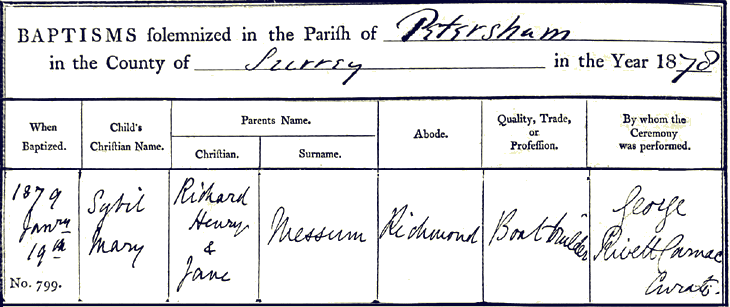 BAPTISMS ſolemnized in the Pariſh of Petersham
in the County of Surrey in the Year 1878
When Baptized.
Child's Chriſtian Name.
Parents Name.
Chriſtian.
Surname.
Abode.
Quality, Trade, or Profeſſion.
By whom the Ceremony was performed.
1879
Janry
19th
No. 799.
Sybil
Mary
Richard
Henry
&
Jane
Messum
Richmond
Boat builder
George
Rivett Carnac
Curate.